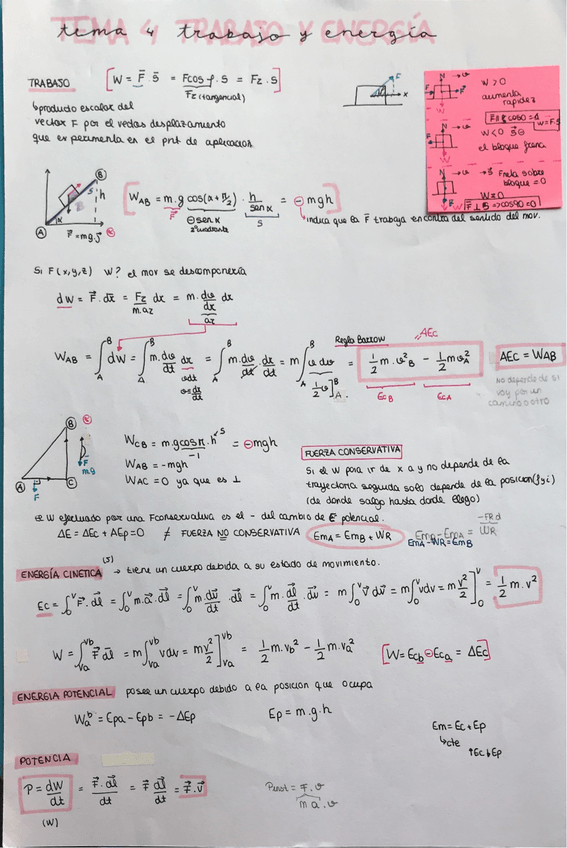 tema 4 trabajo y energía
TRABAJO
[W = F⃗ · S⃗ = F cos φ · S = Fz · S]
Fz (tangencial)
↳ producto escalar del
vector F por el vector desplazamiento
que experimenta en el pnt de aplicación
W > 0
aumenta
rapidez
W = F·S
W < 0
el bloque frena
bloque = 0
W = 0
F⊥S => cos90 = 0
W_AB = m.g cos(α + π/2) · h/senα = ⊖ mgh
⊖ sen α
2º cuadrante
S
F⃗ = m g⃗
indica que la F⃗ trabaja en contra del sentido del mov.
Si F(x,y,z) W? el mov se descompondría
dW = F⃗ · dx⃗ = Fz dx = m · dv/dx dx
m.az
az
W_AB = ∫_A^B dW = ∫_A^B m·dv/dt dx = ∫_A^B m·dv/dt · dx/dt = m ∫_A^B v dv = 1/2 m·v²_B − 1/2 m v²_A
Regla Barrow
ΔEc
ΔEc = W_AB
v dt
v = dx/dt
1/2 v²]_A^B
Ec_B
Ec_A
No depende de si
voy por un
camino o otro
W_CB = m.g cos π · h = ⊖ mgh
−1
W_AB = −mgh
W_AC = 0 ya que es ⊥
FUERZA CONSERVATIVA
Si el W para ir de x a y no depende de la
trayectoria seguida solo depende de la posicion (f y i)
(de donde salgo hasta donde llego)
el W efectuado por una F conservativa es el − del cambio de E potencial.
ΔE = ΔEc + ΔEp = 0 ≠ FUERZA NO CONSERVATIVA
Em_A = Em_B + W_R
−FR·d
Em_B − Em_A = W_R
Em_A − W_R = Em_B
ENERGÍA CINETICA (J) → tiene un cuerpo debida a su estado de movimiento.
Ec = ∫_0^v F⃗ · dl⃗ = ∫_0^v m·a⃗ · dl⃗ = ∫_0^v m dv⃗/dt · dl⃗ = ∫_0^v m · dl⃗/dt · dv⃗ = m ∫_0^v v⃗ dv⃗ = m ∫_0^v v dv = m v²/2]_0^v = 1/2 m · v²
W = ∫_va^vb F⃗ dl⃗ = m ∫_va^vb v dv = m v²/2]_va^vb = 1/2 m · v_b² − 1/2 m · v_a²
[W = Ec_b ⊖ Ec_a = ΔEc]
ENERGIA POTENCIAL posee un cuerpo debido a la posicion que ocupa
W_a^b = Epa − Epb = −ΔEp
Ep = m · g · h
Em = Ec + Ep
↳ cte
↑Ec ↓Ep
POTENCIA
P = dW/dt = F⃗ · dl⃗/dt = F⃗ dl⃗/dt = F⃗ · v⃗
(W)
Pinst = F · v
m a · v